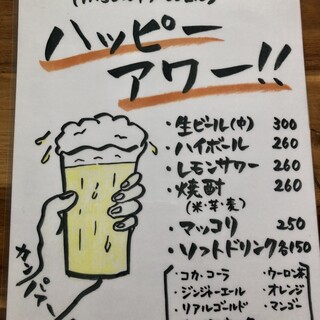 ハッピー
アワー!!
・生ビール(中) 300
・ハイボール 260
・レモンサワー 260
・焼酎 260
(米・芋・麦)
・マッコリ 250
・ソフトドリンク各150
・コカ・コーラ ・ウーロン茶
・ジンジャーエール ・オレンジ
・リアルゴールド ・マンゴー
カンパァーイ